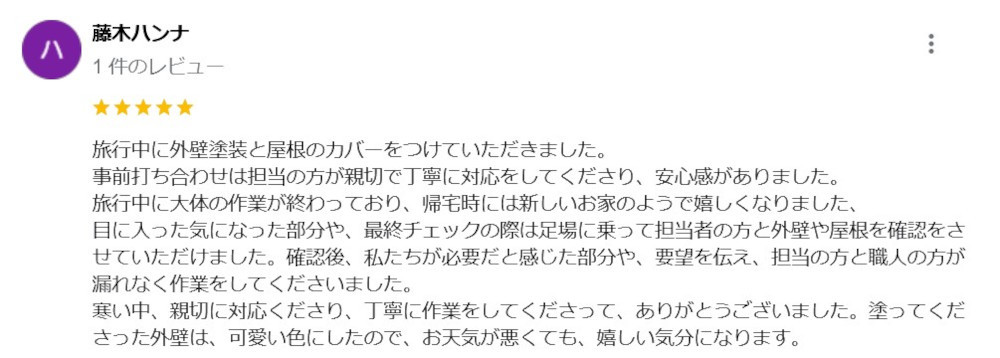 ハ
藤木ハンナ
1 件のレビュー
旅行中に外壁塗装と屋根のカバーをつけていただきました。
事前打ち合わせは担当の方が親切で丁寧に対応をしてくださり、安心感がありました。
旅行中に大体の作業が終わっており、帰宅時には新しいお家のようで嬉しくなりました、
目に入った気になった部分や、最終チェックの際は足場に乗って担当者の方と外壁や屋根を確認をさ
せていただけました。確認後、私たちが必要だと感じた部分や、要望を伝え、担当の方と職人の方が
漏れなく作業をしてくださいました。
寒い中、親切に対応くださり、丁寧に作業をしてくださって、ありがとうございました。塗ってくだ
さった外壁は、可愛い色にしたので、お天気が悪くても、嬉しい気分になります。